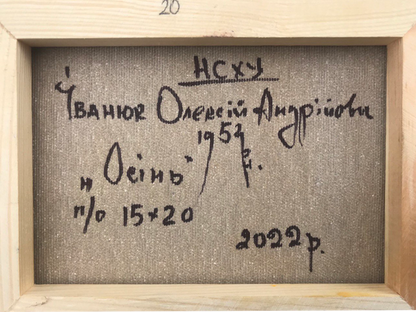 20
НСХУ
Іванюк Олексій Андрійович
195 р.н.
„Осінь"
п/о 15×20
2022р.